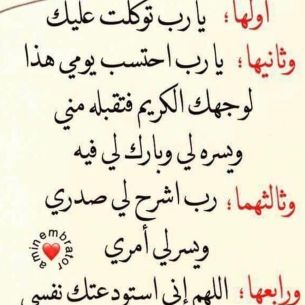 أولها؛ يا رب توكلت عليك
وثانيها؛ يا رب احتسب يومي هذا
لوجهك الكريم فتقبله مني
ويسره لي وبارك لي فيه
وثالثهما؛ رب اشرح لي صدري
ويسر لي أمري
aminembrator
ورابعها؛ اللهم إني استودعتك نفسي